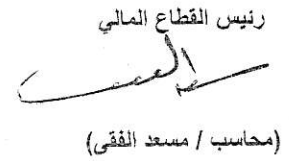 رئيس القطاع المالي
(محاسب / مسعد الفقى)